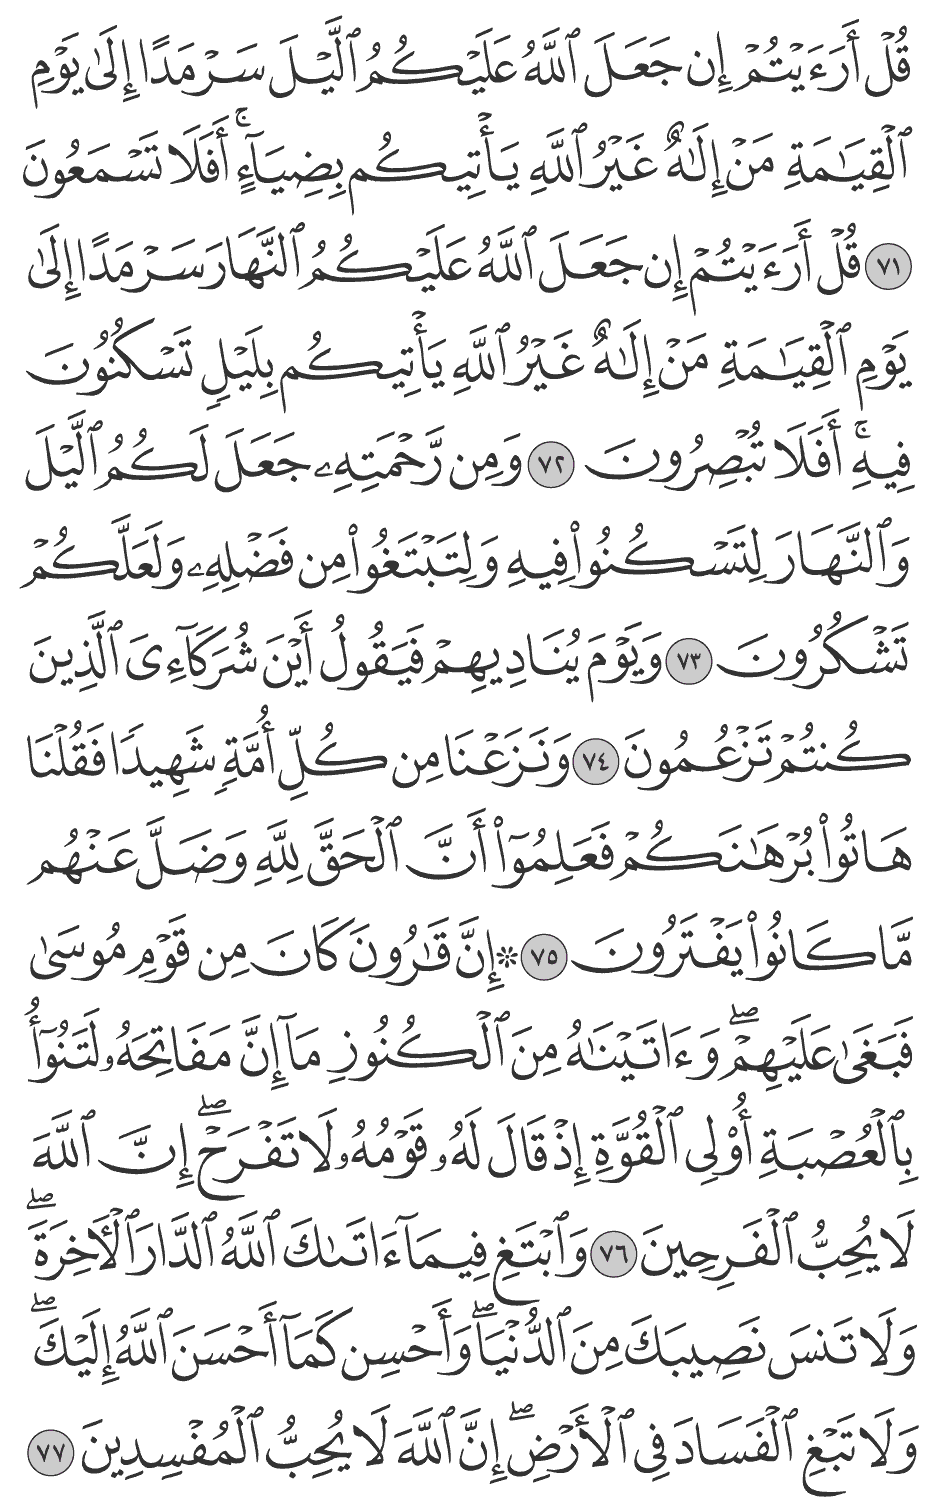 قُلْ أَرَءَيْتُمْ إِن جَعَلَ ٱللَّهُ عَلَيْكُمُ ٱلَّيْلَ سَرْمَدًا إِلَىٰ يَوْمِ
ٱلْقِيَٰمَةِ مَنْ إِلَٰهٌ غَيْرُ ٱللَّهِ يَأْتِيكُم بِضِيَآءٍ ۚ أَفَلَا تَسْمَعُونَ
٧١ قُلْ أَرَءَيْتُمْ إِن جَعَلَ ٱللَّهُ عَلَيْكُمُ ٱلنَّهَارَ سَرْمَدًا إِلَىٰ
يَوْمِ ٱلْقِيَٰمَةِ مَنْ إِلَٰهٌ غَيْرُ ٱللَّهِ يَأْتِيكُم بِلَيْلٍ تَسْكُنُونَ
فِيهِ ۚ أَفَلَا تُبْصِرُونَ ٧٢ وَمِن رَّحْمَتِهِۦ جَعَلَ لَكُمُ ٱلَّيْلَ
وَٱلنَّهَارَ لِتَسْكُنُوا۟ فِيهِ وَلِتَبْتَغُوا۟ مِن فَضْلِهِۦ وَلَعَلَّكُمْ
تَشْكُرُونَ ٧٣ وَيَوْمَ يُنَادِيهِمْ فَيَقُولُ أَيْنَ شُرَكَآءِىَ ٱلَّذِينَ
كُنتُمْ تَزْعُمُونَ ٧٤ وَنَزَعْنَا مِن كُلِّ أُمَّةٍ شَهِيدًا فَقُلْنَا
هَاتُوا۟ بُرْهَٰنَكُمْ فَعَلِمُوٓا۟ أَنَّ ٱلْحَقَّ لِلَّهِ وَضَلَّ عَنْهُم
مَّا كَانُوا۟ يَفْتَرُونَ ٧٥ ۞ إِنَّ قَٰرُونَ كَانَ مِن قَوْمِ مُوسَىٰ
فَبَغَىٰ عَلَيْهِمْ ۖ وَءَاتَيْنَٰهُ مِنَ ٱلْكُنُوزِ مَآ إِنَّ مَفَاتِحَهُۥ لَتَنُوٓأُ
بِٱلْعُصْبَةِ أُو۟لِى ٱلْقُوَّةِ إِذْ قَالَ لَهُۥ قَوْمُهُۥ لَا تَفْرَحْ ۖ إِنَّ ٱللَّهَ
لَا يُحِبُّ ٱلْفَرِحِينَ ٧٦ وَٱبْتَغِ فِيمَآ ءَاتَىٰكَ ٱللَّهُ ٱلدَّارَ ٱلْءَاخِرَةَ ۖ
وَلَا تَنسَ نَصِيبَكَ مِنَ ٱلدُّنْيَا ۖ وَأَحْسِن كَمَآ أَحْسَنَ ٱللَّهُ إِلَيْكَ ۖ
وَلَا تَبْغِ ٱلْفَسَادَ فِى ٱلْأَرْضِ ۖ إِنَّ ٱللَّهَ لَا يُحِبُّ ٱلْمُفْسِدِينَ ٧٧